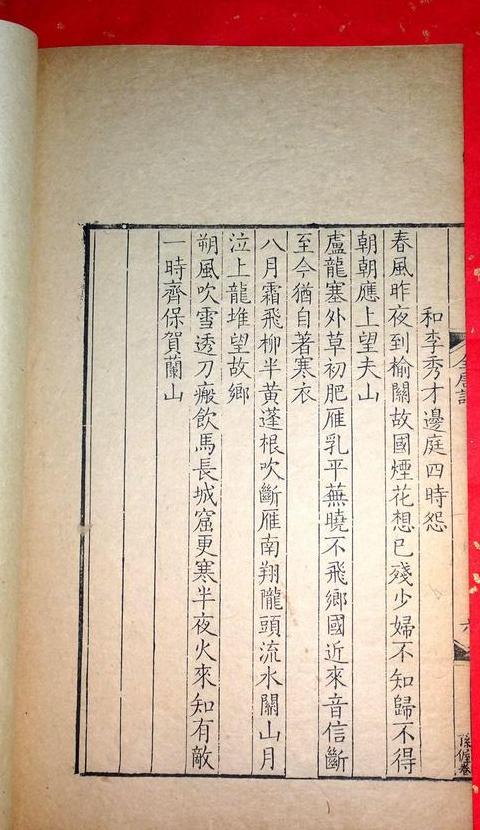 和李秀才邊庭四時怨
春風昨夜到榆關故國煙花想已殘少婦不知歸不得
朝朝應上望夫山
盧龍塞外草初肥雁乳平蕪曉不飛鄉國近來音信斷
至今猶自著寒衣
八月霜飛柳半黃蓬根吹斷雁南翔隴頭流水關山月
泣上龍堆望故鄉
朔風吹雪透刀瘢飲馬長城窟更寒半夜火來知有敵
一時齊保賀蘭山